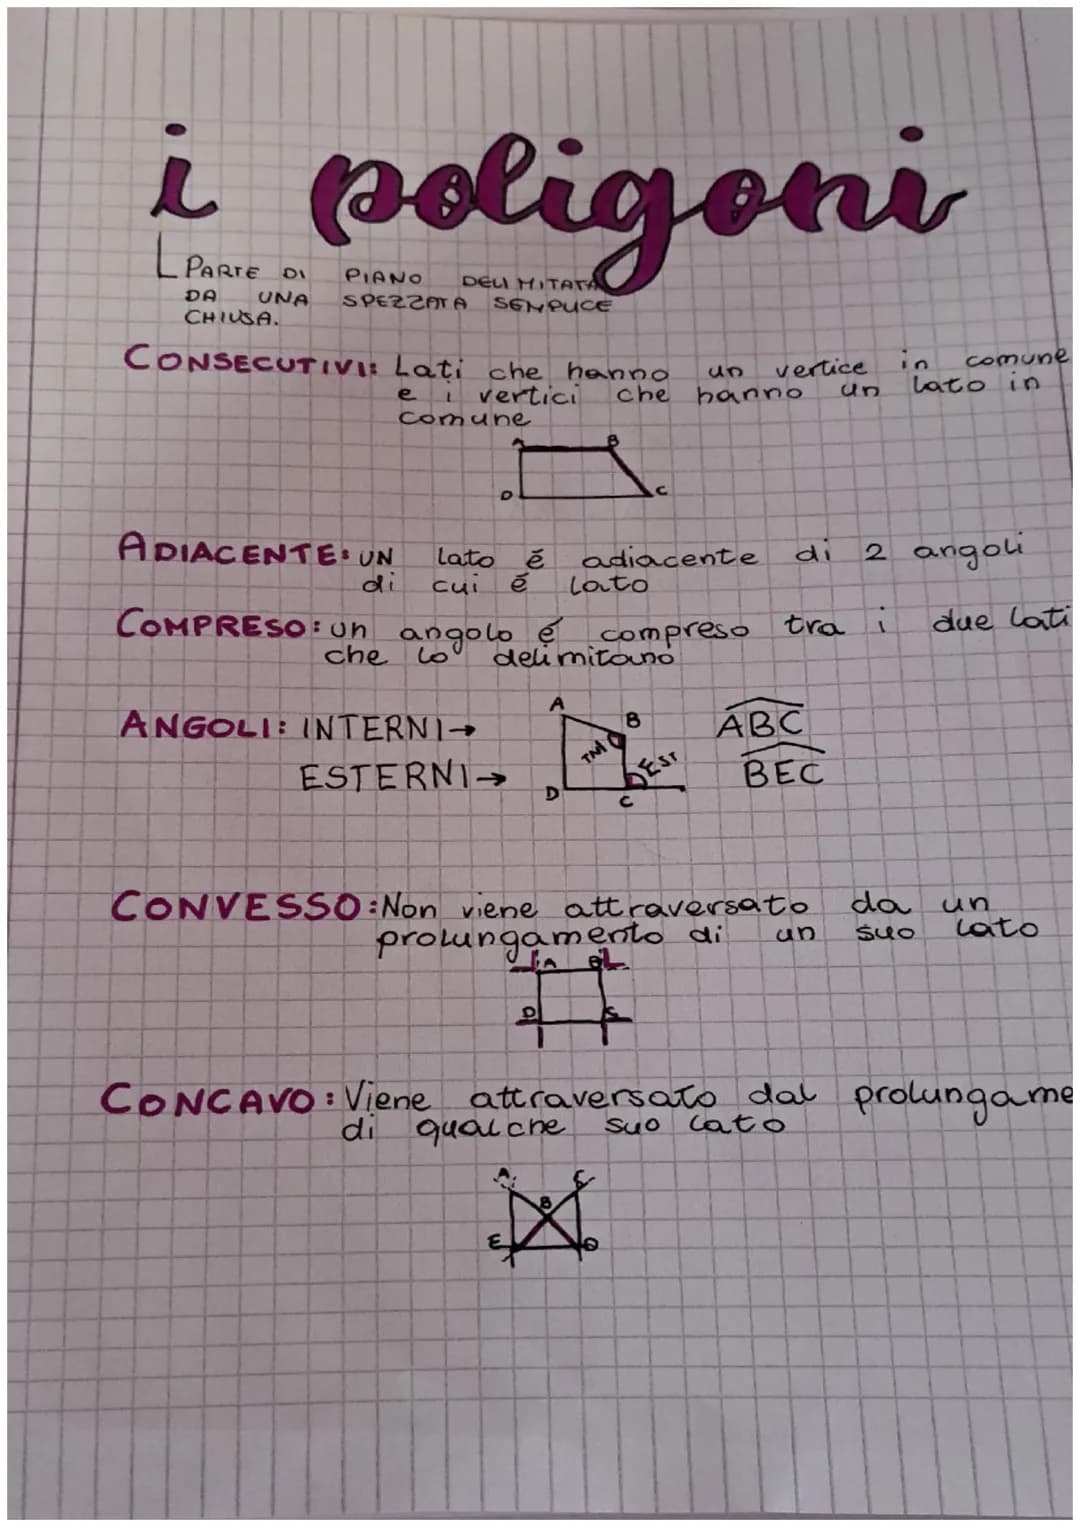 i poligoni
PARTE DI PIANO DELIMITATA
DA UNA SPEZZATA SEMPLICE
CHIUSA.
CONSECUTIVI: Lati che hanno un vertice in comune
e i vertici che hanno un lato in
comune
A B
D C
ADIACENTE: UN lato é adiacente di 2 angoli
di cui é lato
COMPRESO: un angolo é compreso tra i due lati
che lo delimitano
A
ANGOLI: INTERNI→ B ABC
INT EST
ESTERNI→ D C BEC
CONVESSO: Non viene attraversato da un
prolungamento di un suo lato
A B
D
CONCAVO: Viene attraversato dal prolungame
di qualche suo lato
A C
B
E D